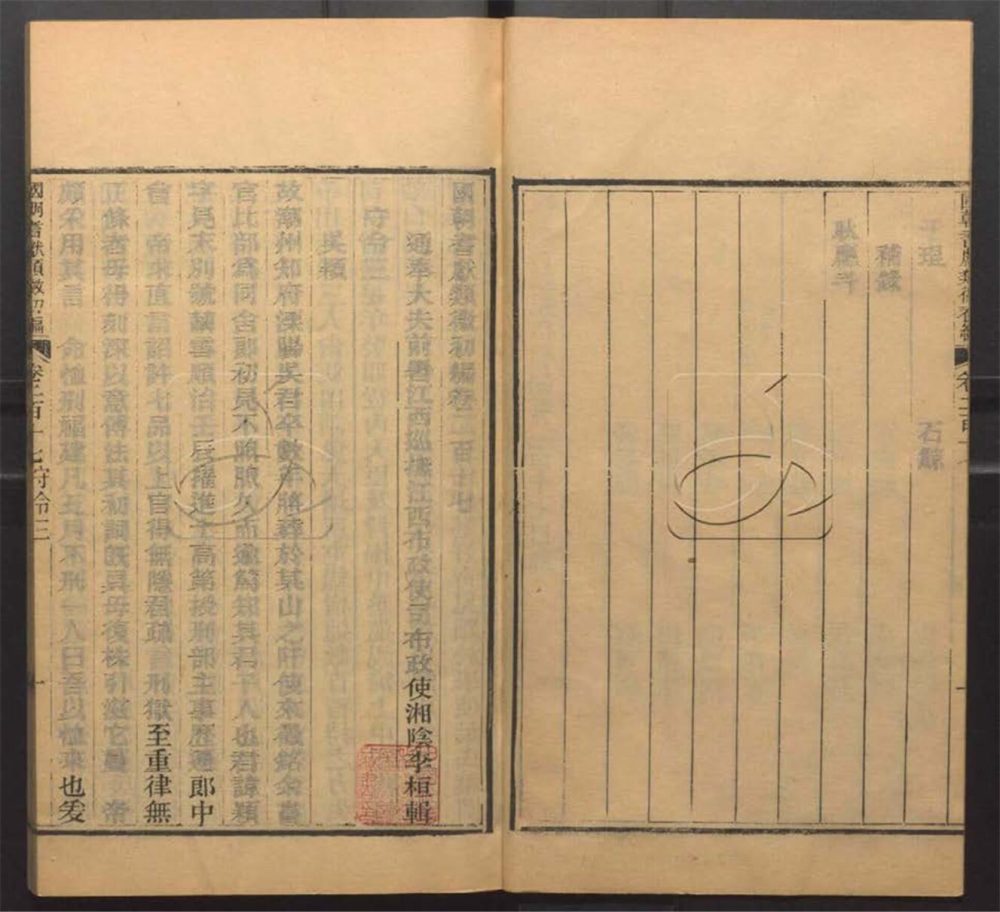 于琨
石鯨
補錄
國朝耆獻類徵初編卷二百十七
通奉大夫前署江西巡撫江西布政使司布政使湘陰李桓輯
守令三
吳穎
故潮州知府溧陽吳君卒數年將葬於某山之阡使來徵銘余昔
官比部為同舍郎初見不昵昵久而逾篤知其君子人也君諱穎
字見末別號長雲順治壬辰擢進士高第授刑部主事歷遷郎中
帝求直言詔許七品以上官得無隱君疏言刑獄至重律無
正條者毋得刻深以意傅法其初詞既具毋復株引滋它釁帝
頗采用其言命恤刑福建凡五月不刑一人曰吾以恤來也爰
國朝耆獻類徵初編 卷二百十七 守令三 一